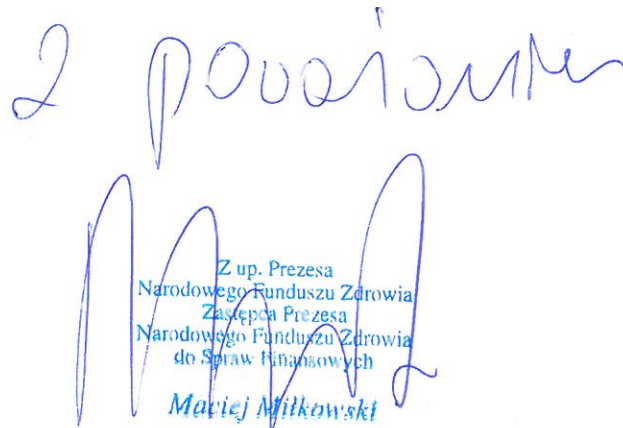 Z poważaniem
Z up. Prezesa
Narodowego Funduszu Zdrowia
Zastępca Prezesa
Narodowego Funduszu Zdrowia
do Spraw Finansowych
Maciej Miłkowski